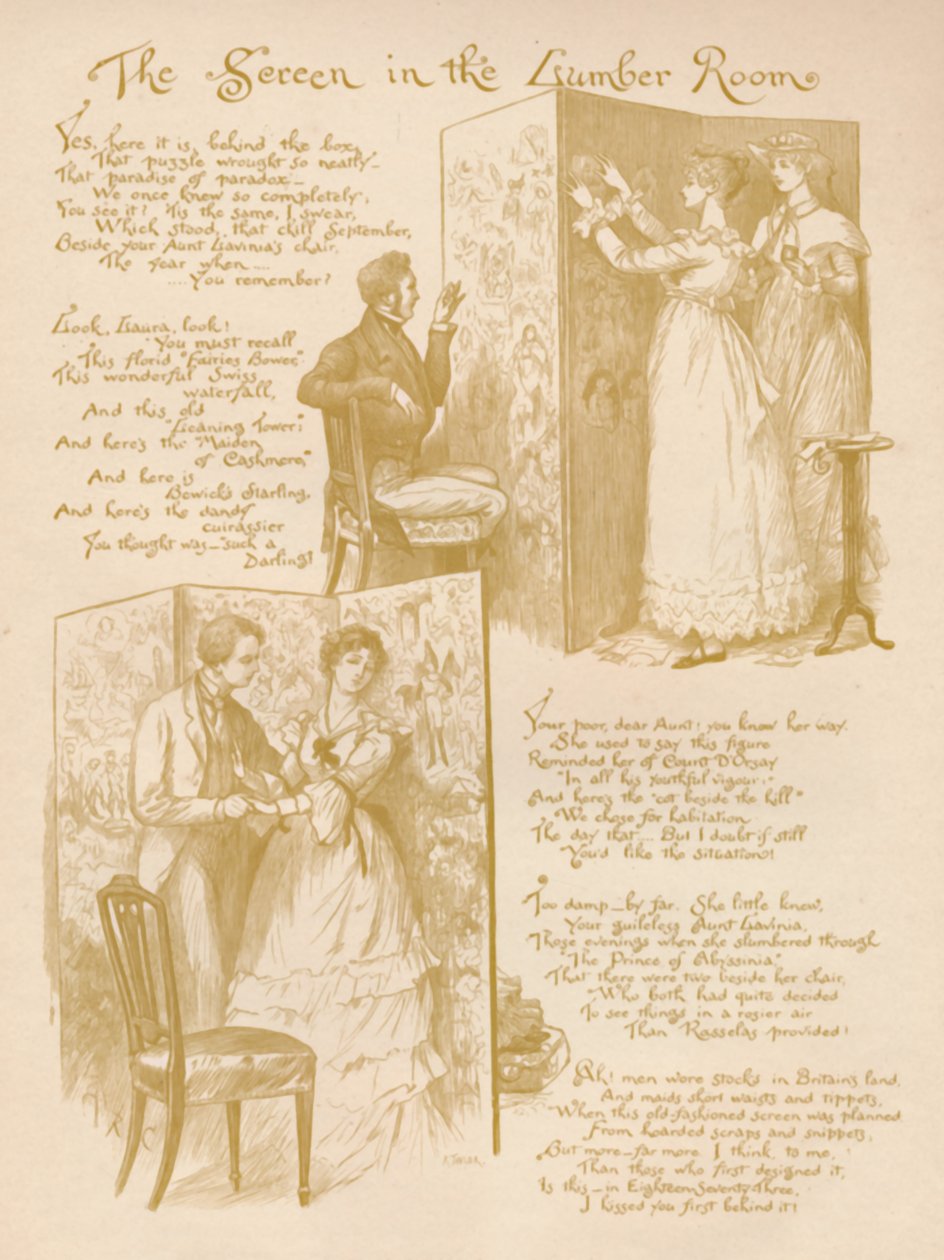 The Screen in the Lumber Room
Yes, here it is, behind the box,
That puzzle wrought so neatly—
That paradise of paradox—
We once knew so completely;
You see it? 'Tis the same, I swear,
Which stood, that chill September,
Beside your Aunt Lavinia's chair,
The year when ....
....You remember?
Look, Laura, look!
You must recall
This florid "Fairies Bower,"
This wonderful Swiss
waterfall,
And this old
"Leaning Tower;"
And here's the "Maiden
of Cashmere,"
And here is
Bewick's Starling,
And here's the dandy
cuirassier
You thought was—"such a
Darling!"
Your poor, dear Aunt! you know her way.
She used to say this figure
Reminded her of Count D'Orsay
"In all his youthful vigour;"
And here's the "cot beside the hill"
We chose for habitation
The day that.... But I doubt if still
You'd like the situation!
Too damp—by far. She little knew,
Your guileless Aunt Lavinia,
Those evenings when she slumbered through
"The Prince of Abyssinia"
That there were two beside her chair,
Who both had quite decided
To see things in a rosier air
Than Rasselas provided!
Ah! men wore stocks in Britain's land,
And maids short waists and tippets,
When this old-fashioned screen was planned
From hoarded scraps and snippets;
But more—far more I think, to me,
Than those who first designed it,
Is this—in Eighteen Seventy Three,
I kissed you first behind it!